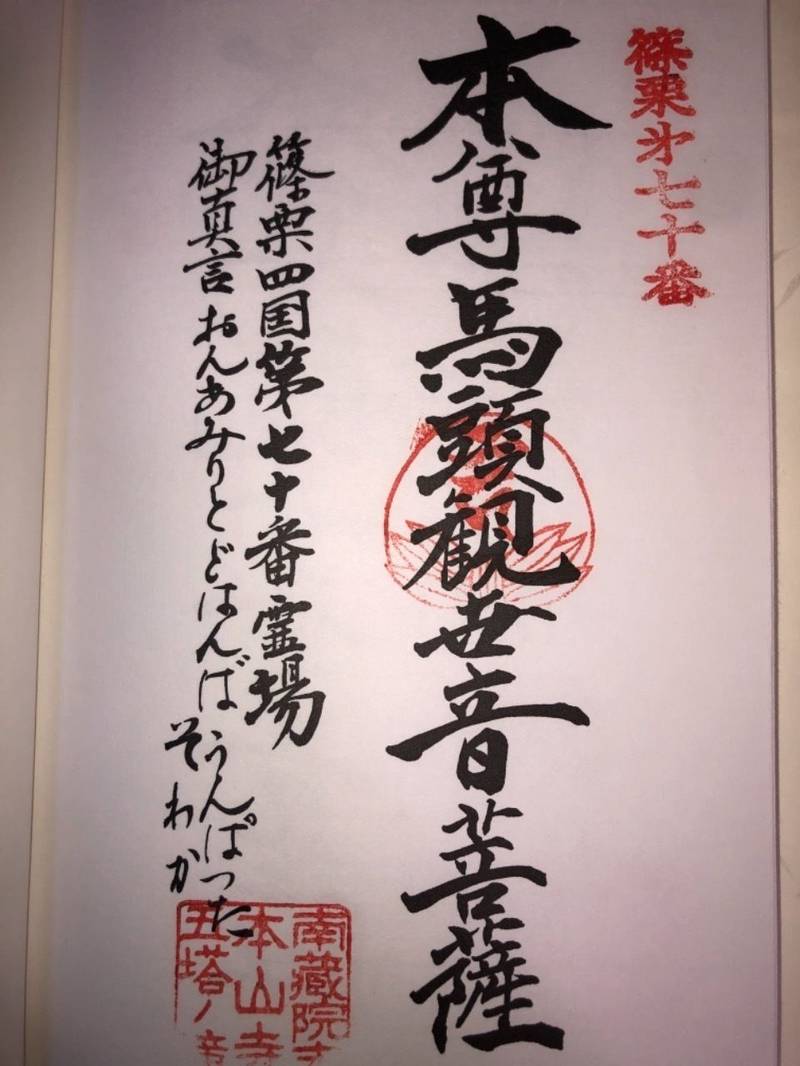 篠栗㐧七十番
本尊馬頭観世音菩薩
篠栗四国第七十番霊場
御真言おんあみりとどはんばうんぱった
そわか
南蔵院
本山寺
五塔ノ